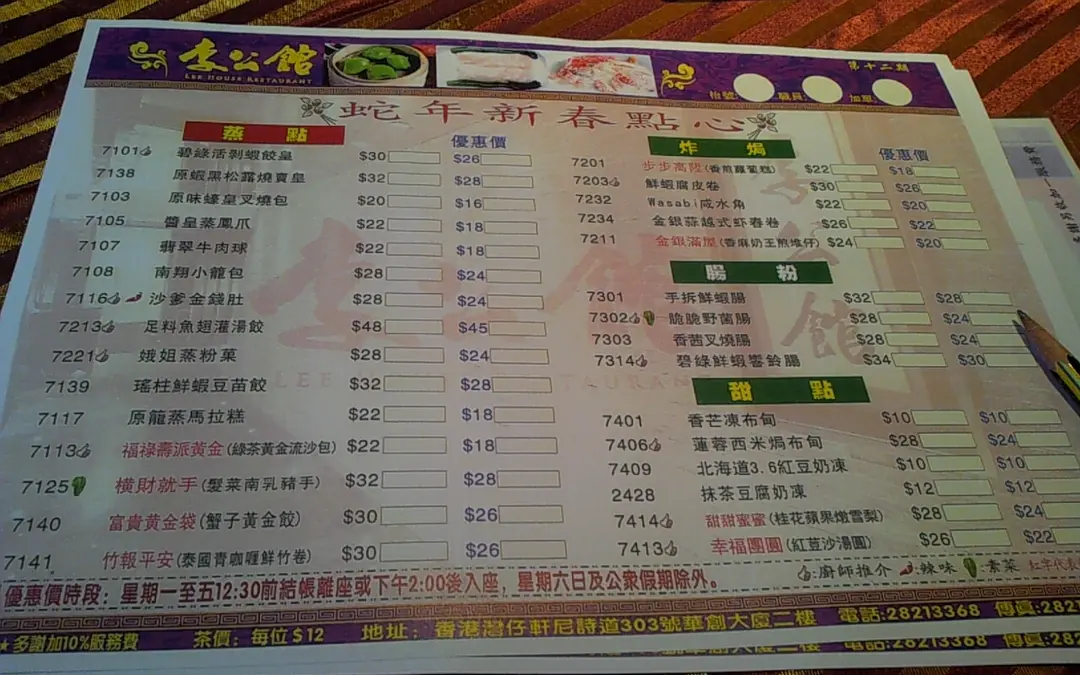 李公館
LEE HOUSE RESTAURANT
第十二期
枱號: 職員: 加單:
蛇年新春點心
蒸 點 優惠價
7101 碧綠活剝蝦餃皇 $30 $26
7138 原蝦黑松露燒賣皇 $32 $28
7103 原味蠔皇叉燒包 $20 $16
7105 醬皇蒸鳳爪 $22 $18
7107 翡翠牛肉球 $22 $18
7108 南翔小籠包 $28 $24
7116 沙爹金錢肚 $28 $24
7213 足料魚翅灌湯餃 $48 $45
7221 娥姐蒸粉菓 $28 $24
7139 瑤柱鮮蝦豆苗餃 $32 $28
7117 原籠蒸馬拉糕 $22 $18
7113 福祿壽派黃金(綠茶黃金流沙包) $22 $18
7125 橫財就手(髮菜南乳豬手) $32 $28
7140 富貴黃金袋(蟹子黃金餃) $30 $26
7141 竹報平安(泰國青咖喱鮮竹卷) $30 $26
炸 焗 優惠價
7201 步步高陞(香煎蘿蔔糕) $22 $18
7203 鮮蝦腐皮卷 $30 $26
7232 Wasabi咸水角 $22 $20
7234 金銀蒜越式虾春卷 $26 $22
7211 金銀滿屋(香麻奶王煎堆仔) $24 $20
腸 粉
7301 手拆鮮蝦腸 $32 $28
7302 脆脆野菌腸 $28 $24
7303 香茜叉燒腸 $28 $24
7314 碧綠鮮蝦響鈴腸 $34 $30
甜 點
7401 香芒凍布甸 $10 $10
7406 蓮蓉西米焗布甸 $28 $24
7409 北海道3.6紅豆奶凍 $10 $10
2428 抹茶豆腐奶凍 $12 $12
7414 甜甜蜜蜜(桂花蘋果燉雪梨) $28 $24
7413 幸福團圓(紅荳沙湯圓) $26 $22
:廚師推介 :辣味 :素菜 紅字代表
優惠價時段：星期一至五12:30前結帳離座或下午2:00後入座，星期六日及公眾假期除外。
★多謝加10%服務費 茶價：每位$12 地址：香港灣仔軒尼詩道303號華創大廈二樓 電話:28213368 傳真:2821
電話:28213368 傳真:282